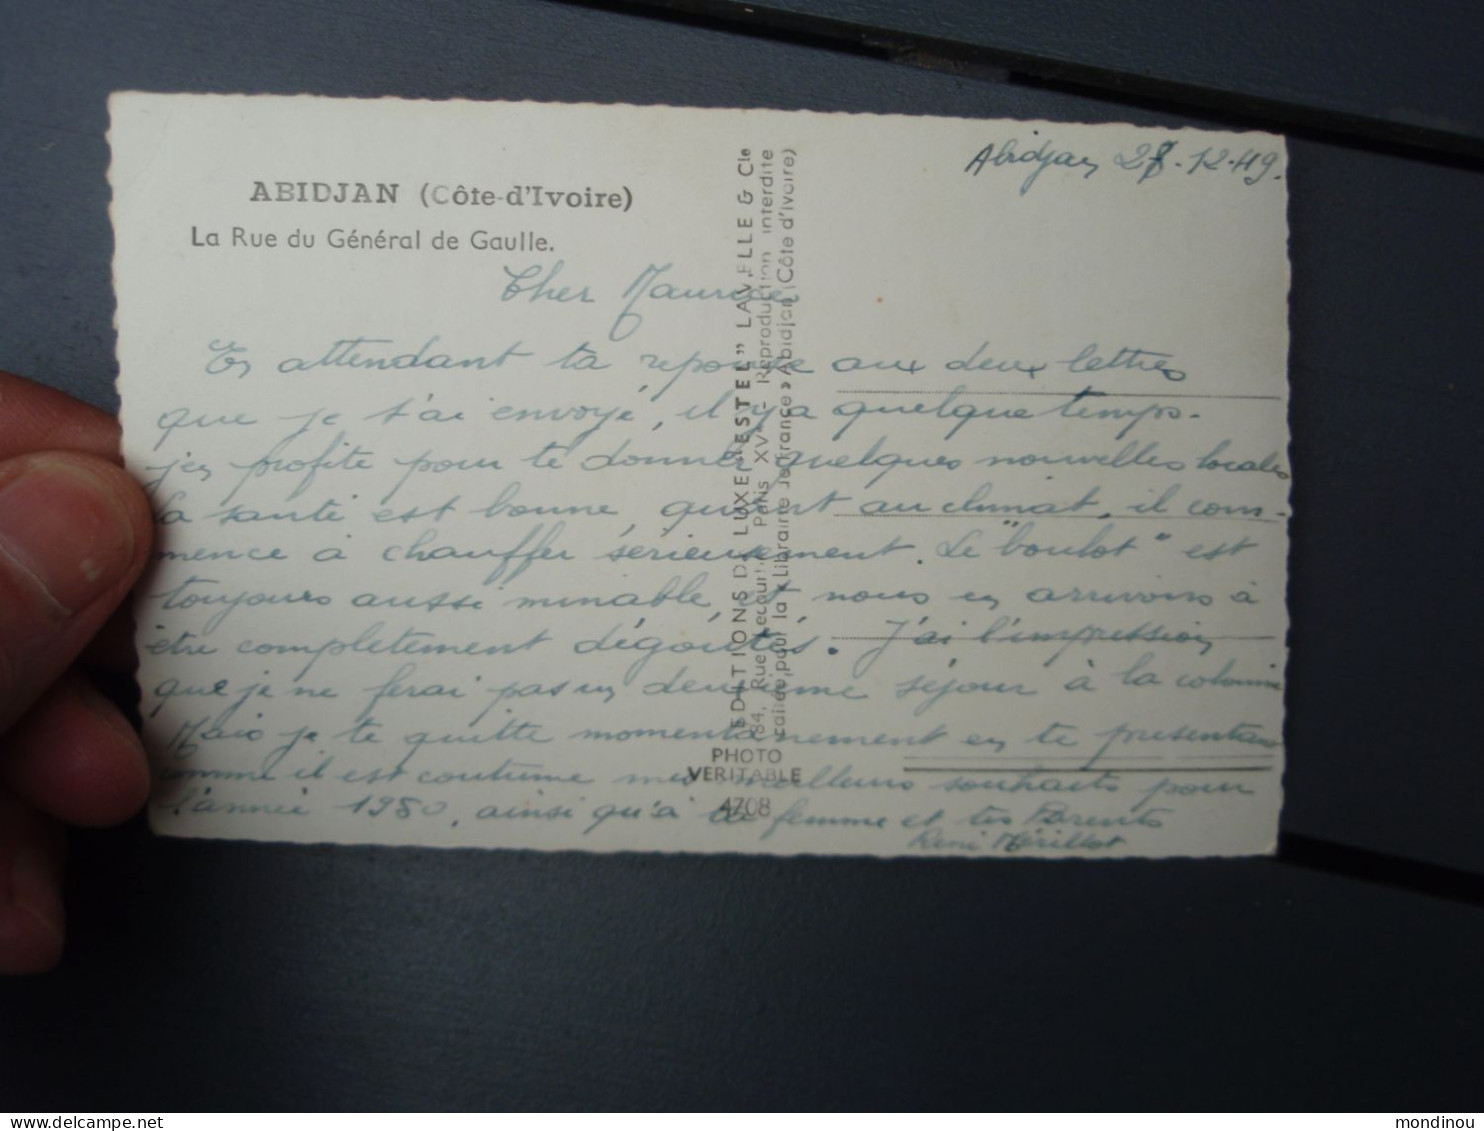 Abidjan 28-12-49.
ABIDJAN (Côte-d'Ivoire)
La Rue du Général de Gaulle.
Cher Maurice
En attendant ta reponse aux deux lettres
que je t'ai envoyé, il y a quelque temps.
j'en profite pour te donner quelques nouvelles locales
La santé est bonne, quant au climat, il com-
mence à chauffer sérieusement. Le "boulot" est
toujours aussi minable, et nous en arrivons à
être complètement dégoutés. J'ai l'impression
que je ne ferai pas un deuxième séjour à la colonie
Mais je te quitte momentanement en te presentant
comme il est coutume mes meilleurs souhaits pour
l'année 1950, ainsi qu'à ta femme et tes Parents
René
EDITIONS DE LUXE "ESTEL" LAVELLE & Cie
84, Rue Lecourbe Paris XV - Reproduction interdite
pour la "Librairie de France" Abidjan (Côte d'Ivoire)
PHOTO
VERITABLE
4708
mondinou